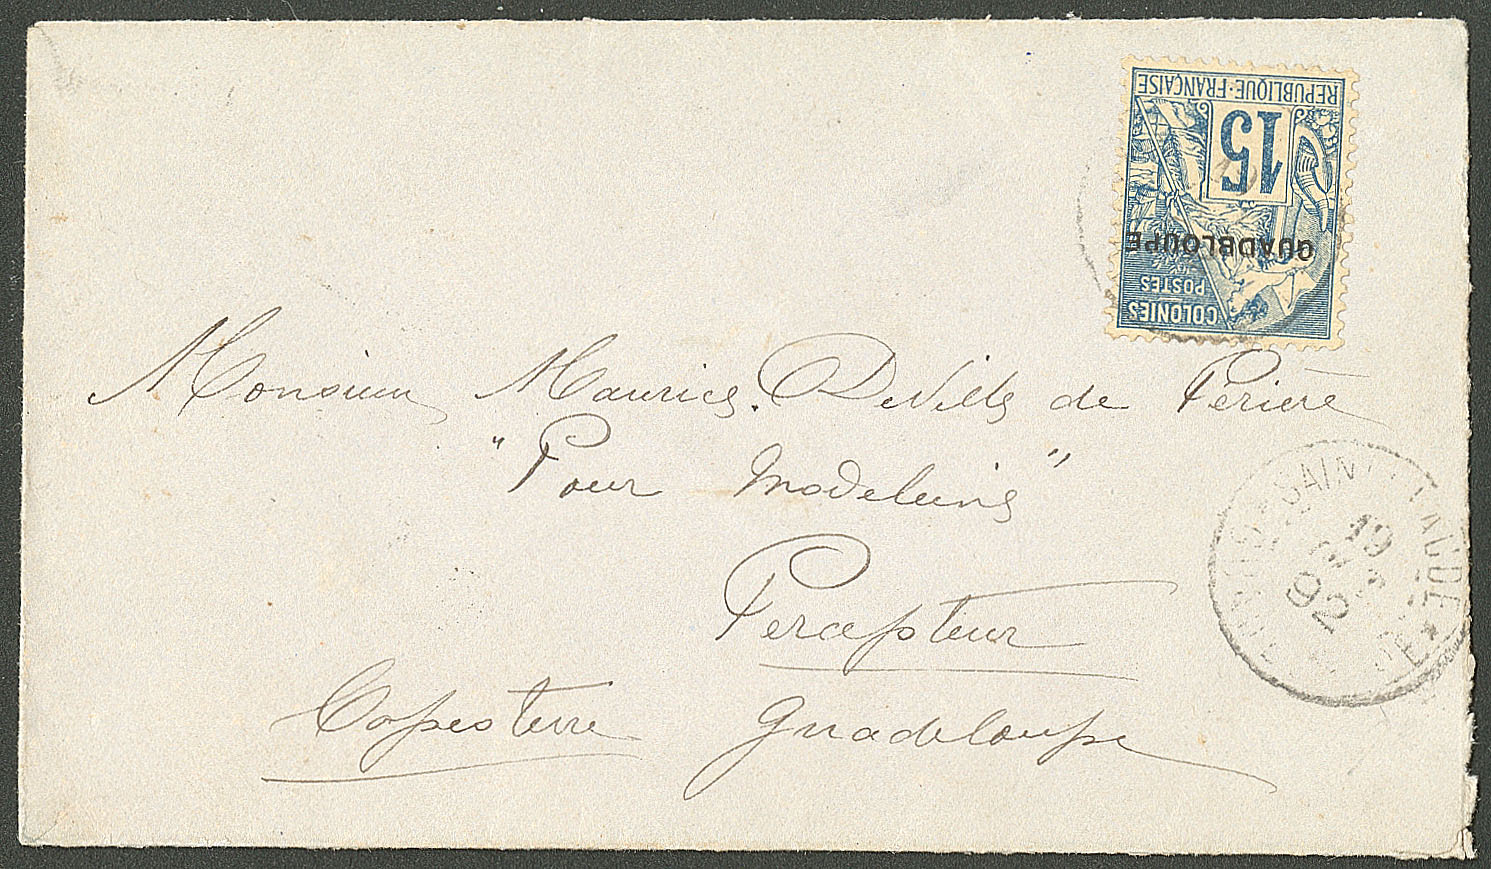 REPUBLIQUE·FRANÇAISE
15
GUADBLOUPE
POSTES
COLONIES
Monsieur Maurice. DeVille de Perière
"Pour Madeleine"
SAINT CLAUDE
19
92
Percepteur
Capesterre Guadeloupe